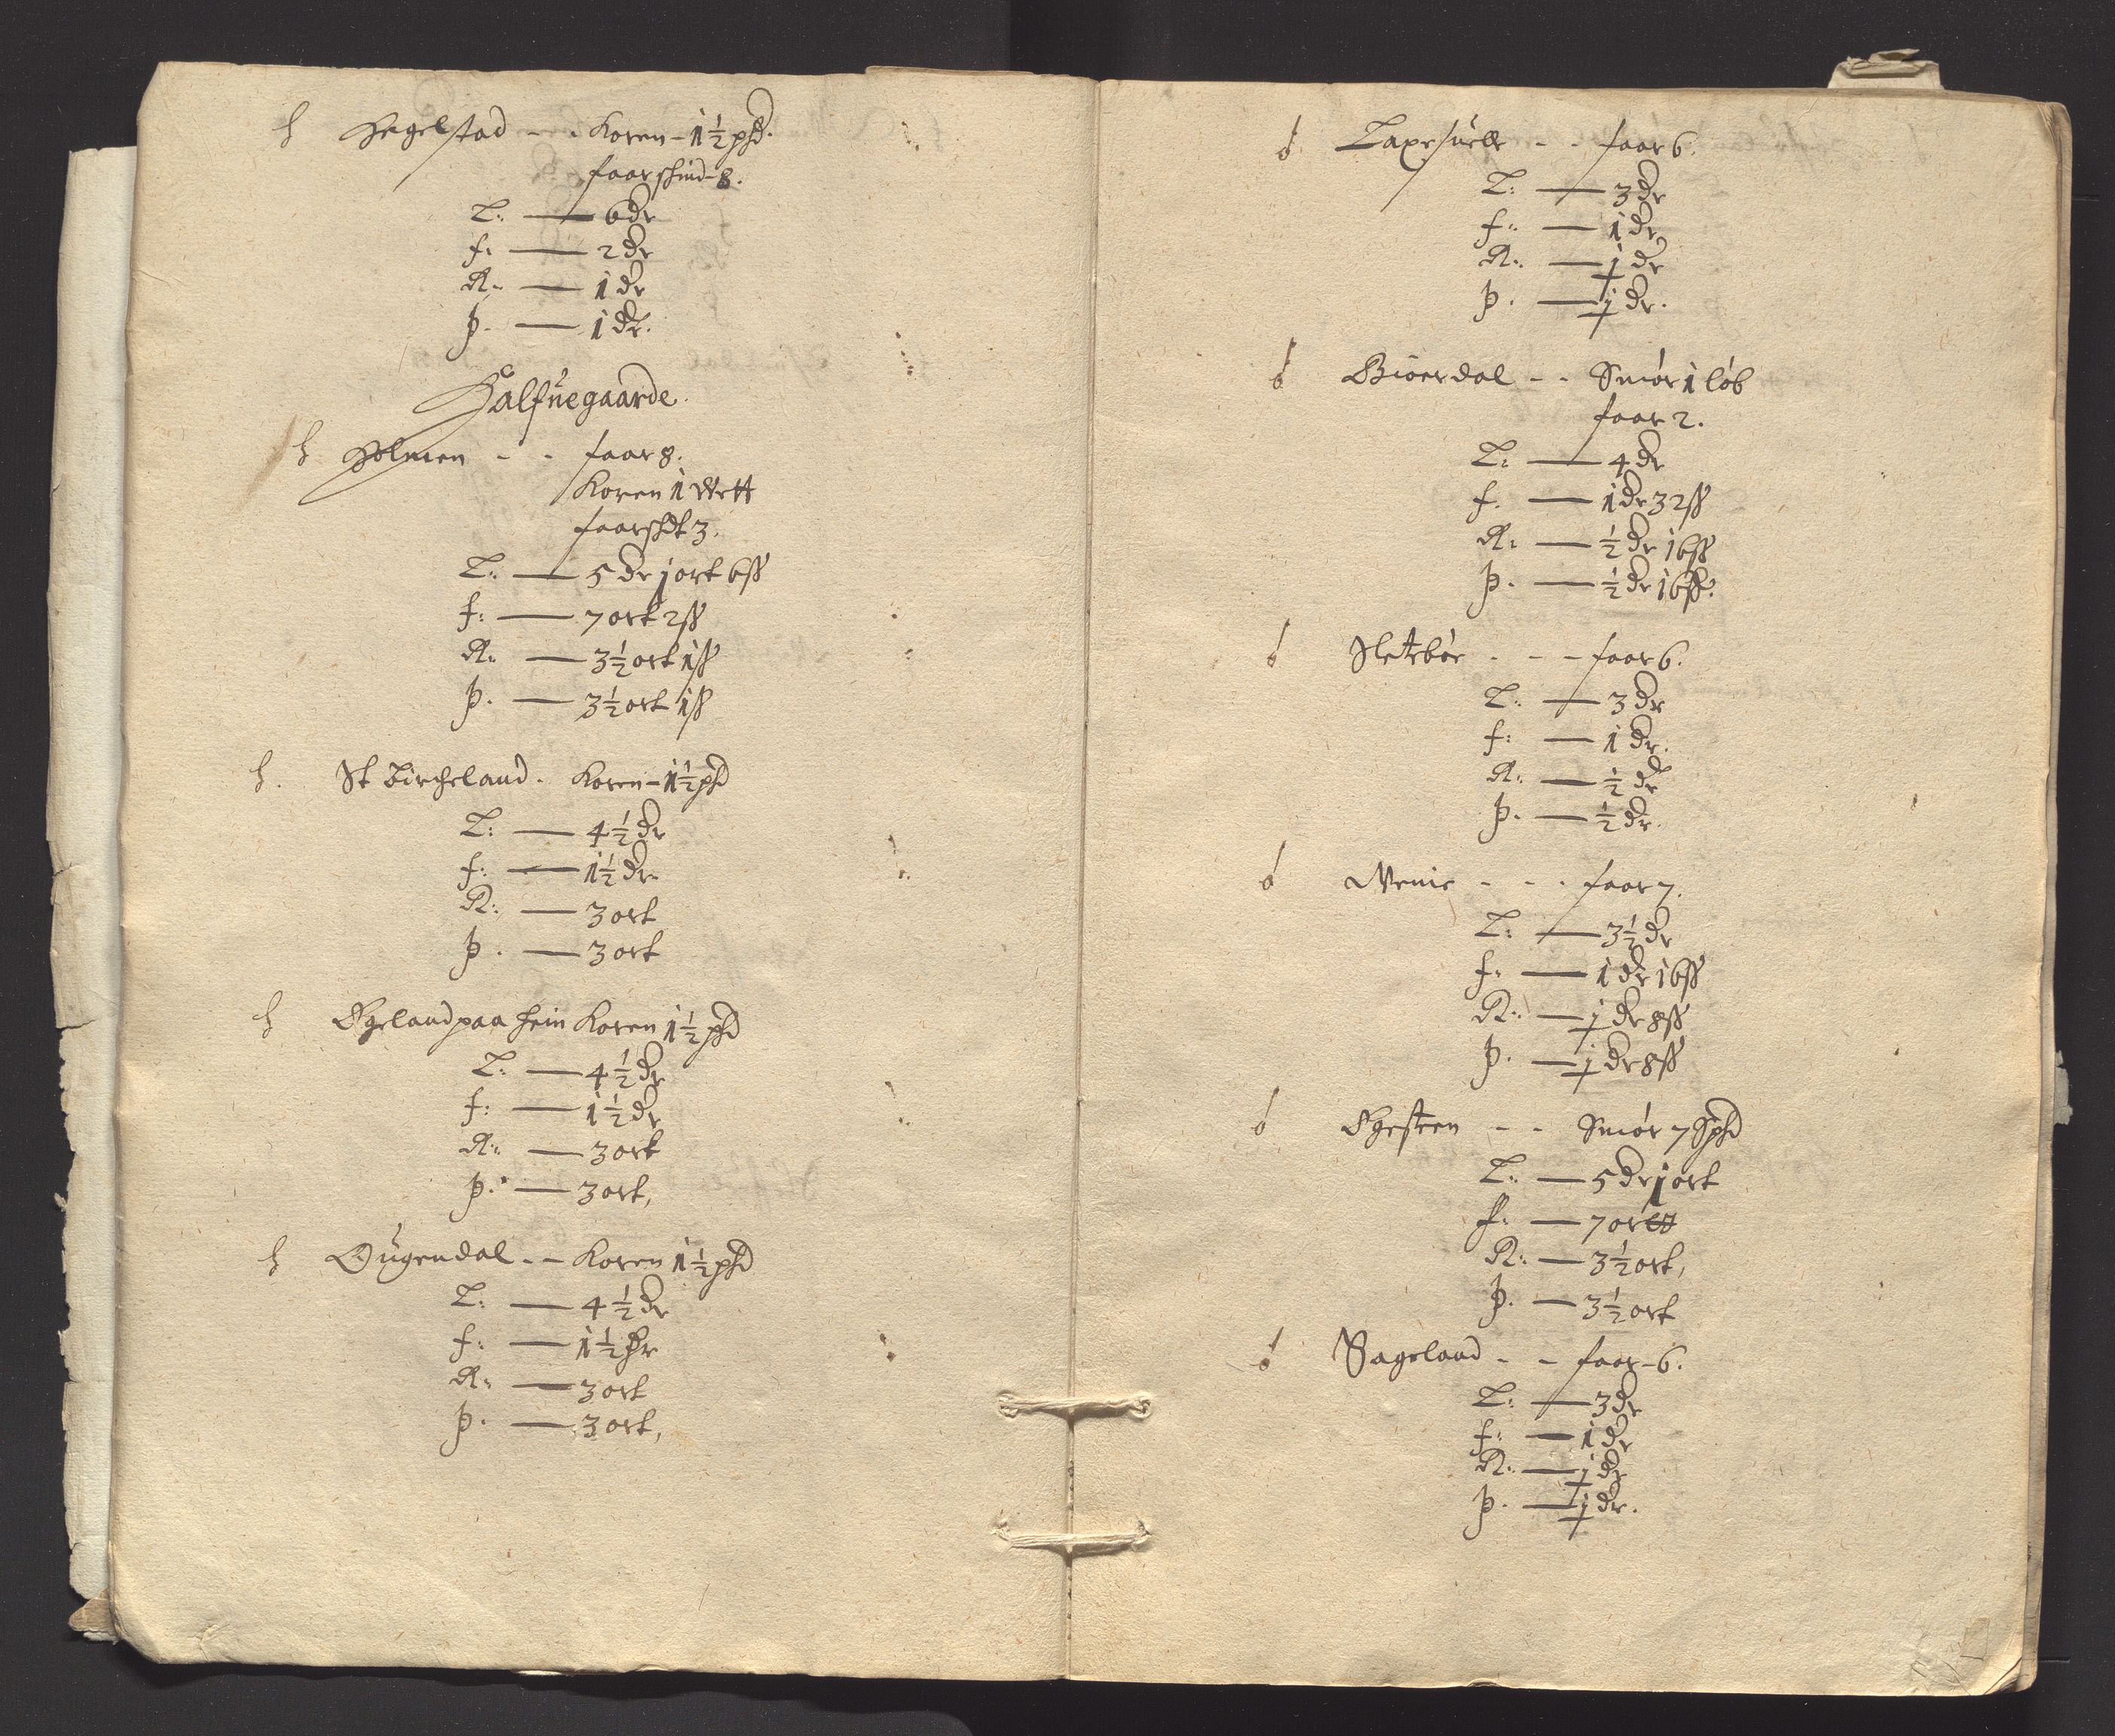 h Hegelstad - - Koren - 1½ phd.
faarschind - 8.
L: — 6 dr
f: — 2 dr
R: — 1 dr
þ. — 1 dr.
Halfuegaarde.
h Holmen - - faar 8.
Koren 1 Wett
faarschd 3.
L: — 5 dr j ort 6 ß
f: — 7 ort 2 ß
R: — 3½ ort 1 ß
þ. — 3½ ort 1 ß
h. St Bircheland. Koren - 1½ phd
L: — 4½ dr
f: — 1½ dr.
R: — 3 ort
þ. — 3 ort
h Egeland paa hein Koren 1½ phd
L: — 4½ dr
f: — 1½ dr
R: — 3 ort
þ. — 3 ort,
h Ougendal - - Koren 1½ phd
L: — 4½ dr
f: — 1½ dr
R: — 3 ort
þ. — 3 ort,
ó Laxesuelle - - faar 6.
L: — 3 dr
f: — 1 dr,
R: — ɉ dr
þ. — ɉ dr.
ó Bioerdal - - Smór 1 lób
faar 2.
L: — 4 dr
f. — 1 dr 32 ß
R: — ½ dr 16 ß
þ. — ½ dr 16 ß.
ó Sletebóe - - - faar 6.
L: — 3 dr
f: — 1 dr.
R: — ½ dr
þ. — ½ dr.
ó Wenie - - - faar 7.
L: — 3½ dr
f: — 1 dr 16 ß
R: — ɉ dr 8 ß
þ. — ɉ dr 8 ß
ó Egesteen - - Smór 7 Sphd
L: — 5 dr j ort
f: — 7 ort
R: — 3½ ort,
þ. — 3½ ort
ó Bageland - - faar - 6.
L: — 3 dr
f: — 1 dr
R: — ɉ dr
þ. — ɉ dr.